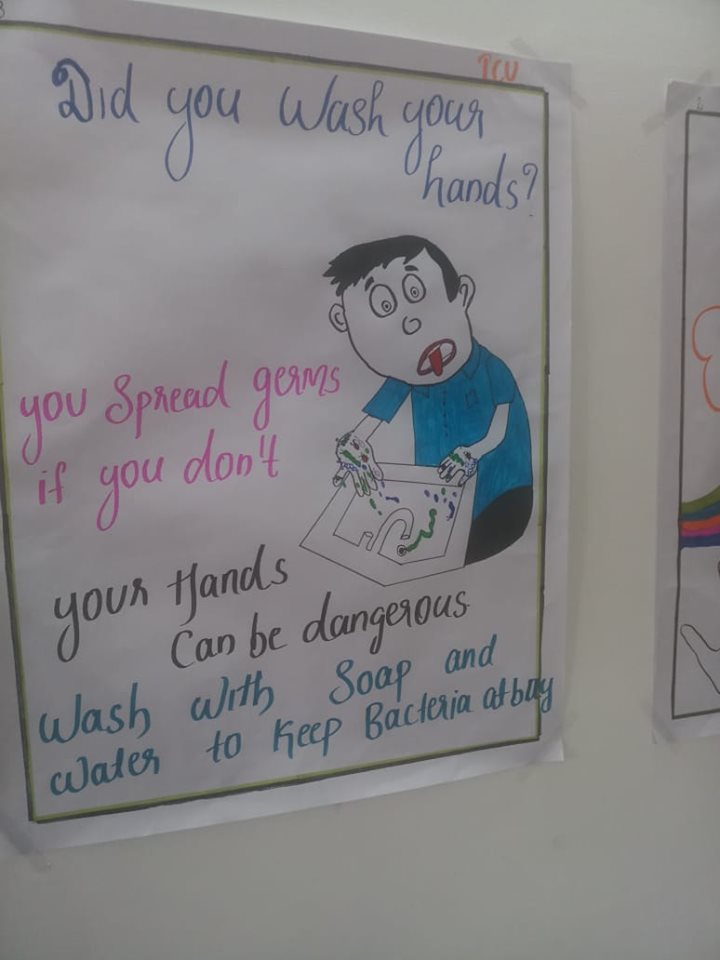 PCU
Did you wash your
hands?
you spread germs
if you don't
your Hands
Can be dangerous
Wash with Soap and
water to Keep Bacteria at bay